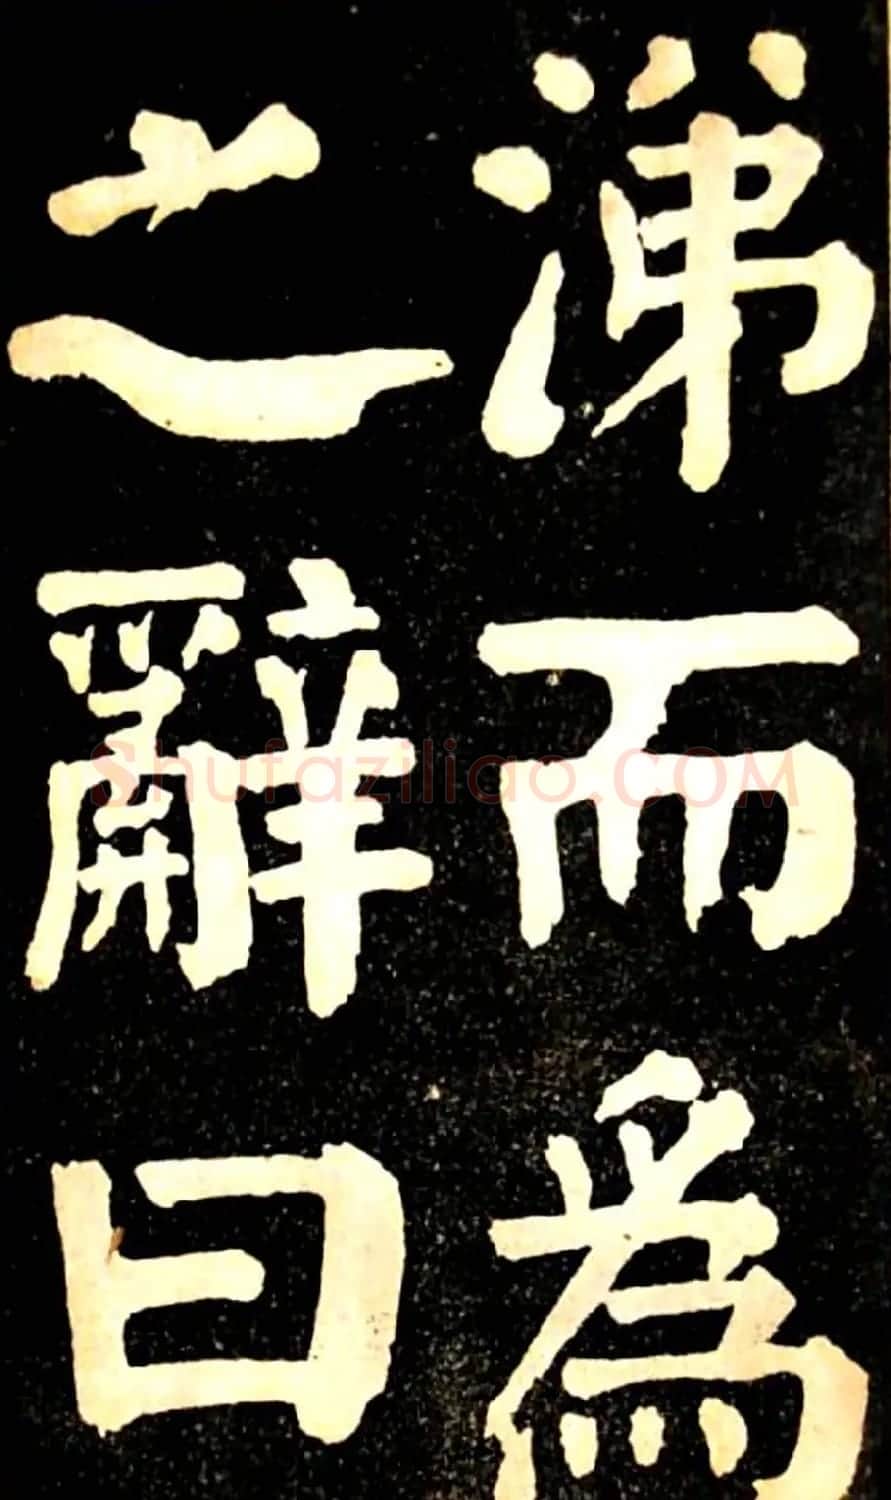 涕而為
之辭曰
Shufaziliao.COM